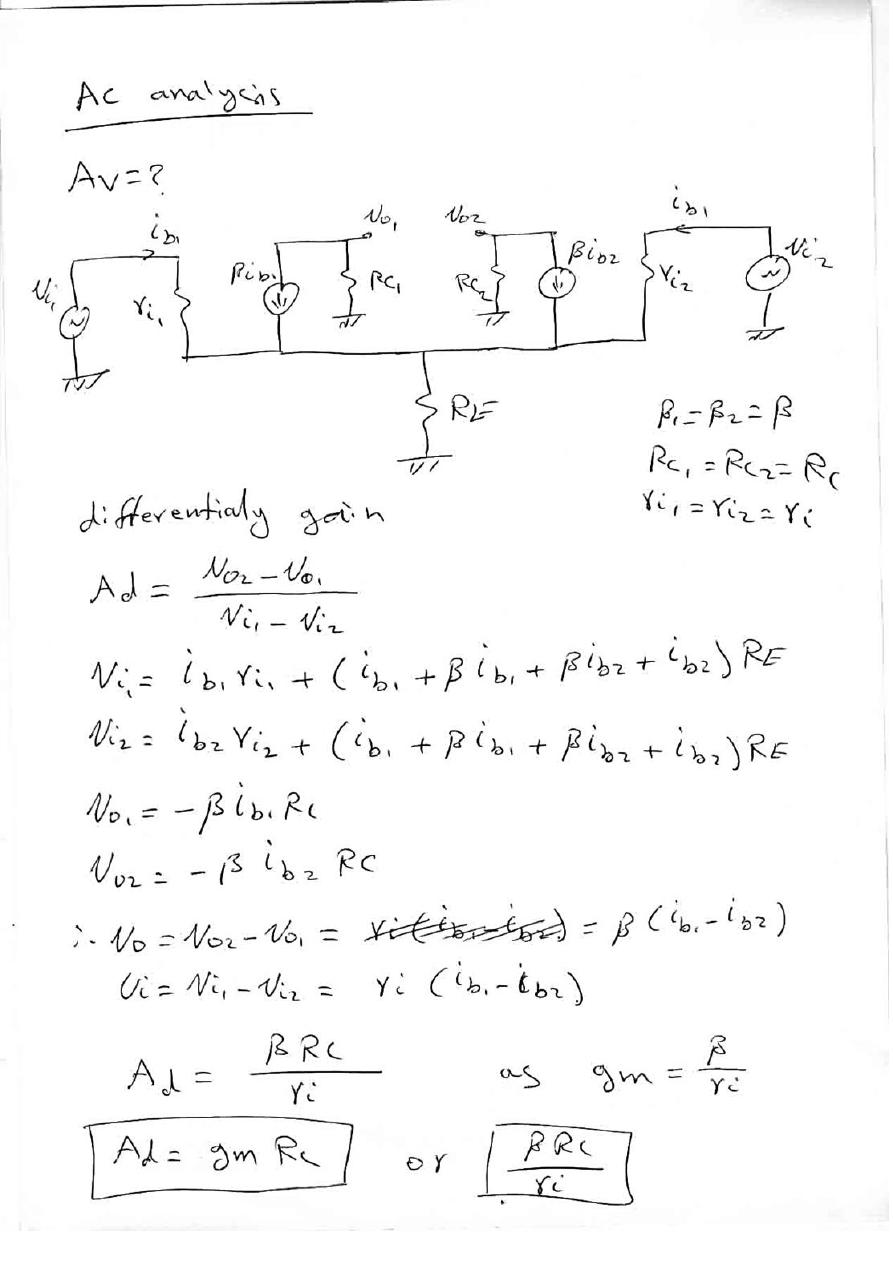 Ac analysis
Av=?
ib1
Vo1
Vo2
ib1
Vi1
ri1
βib1
RC1
RC2
βib2
ri2
Vi2
RE
β1=β2=β
RC1=RC2=RC
ri1=ri2=ri
differentialy gain
Ad = (Vo2-Vo1)/(Vi1-Vi2)
Vi1= ib1 ri1 + (ib1 + βib1 + βib2 + ib2) RE
Vi2= ib2 ri2 + (ib1 + βib1 + βib2 + ib2) RE
Vo1= -βib1 RC
Vo2= -β ib2 RC
∴ Vo = Vo2-Vo1 = ri(ib1-ib2) = β(ib1-ib2)
Vi = Vi1-Vi2 = ri (ib1-ib2)
Ad = βRC/ri as gm = β/ri
Ad = gm RC or βRC/ri